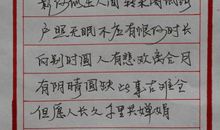 影何似在人间转朱阁低绮
户照无眠不应有恨何时长
向别时圆人有悲欢离合月
有阴晴圆缺此事古难全
但愿人长久千里共婵娟